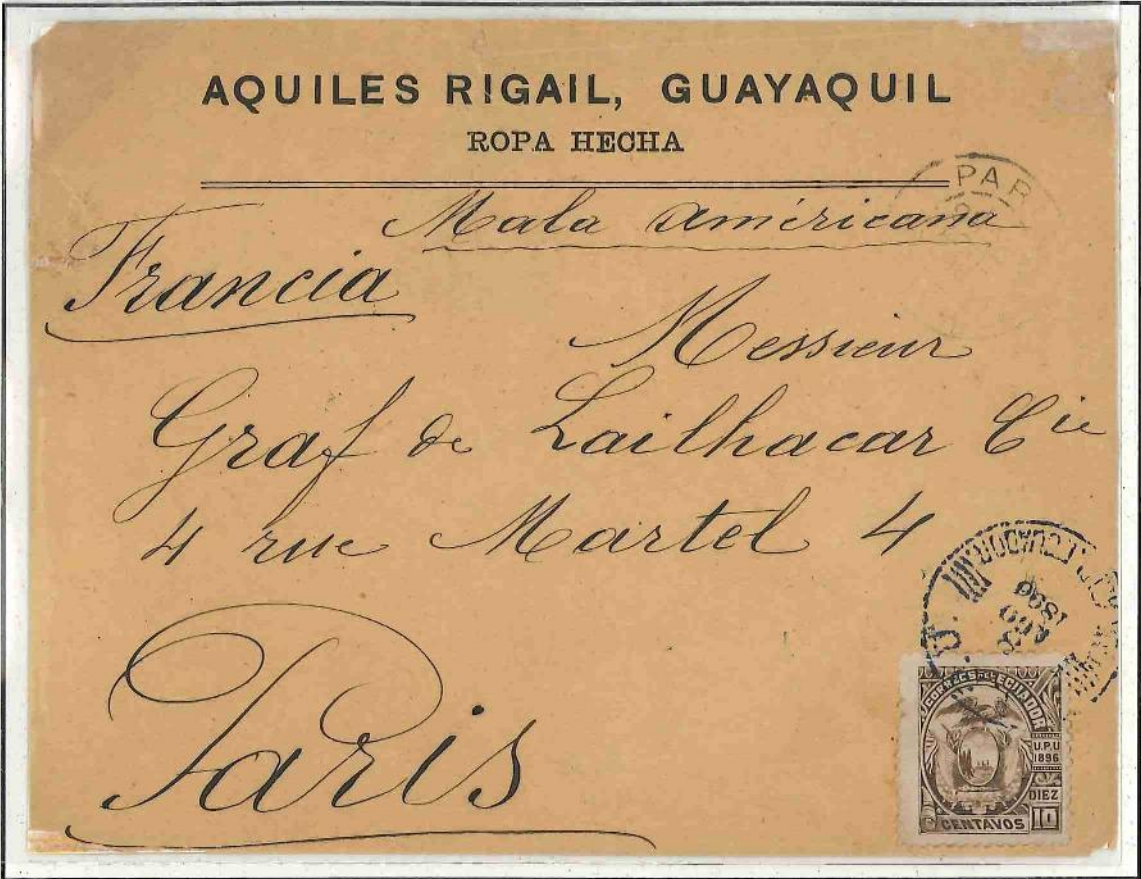 AQUILES RIGAIL, GUAYAQUIL
ROPA HECHA
PAR
Mala américana
Francia
Messieur
Graf de Lailhacar Cie
4 rue Martel 4
Paris
ECUADOR
AGO
1896
CORREOS DEL ECUADOR
U.P.U
1896
DIEZ
CENTAVOS 10